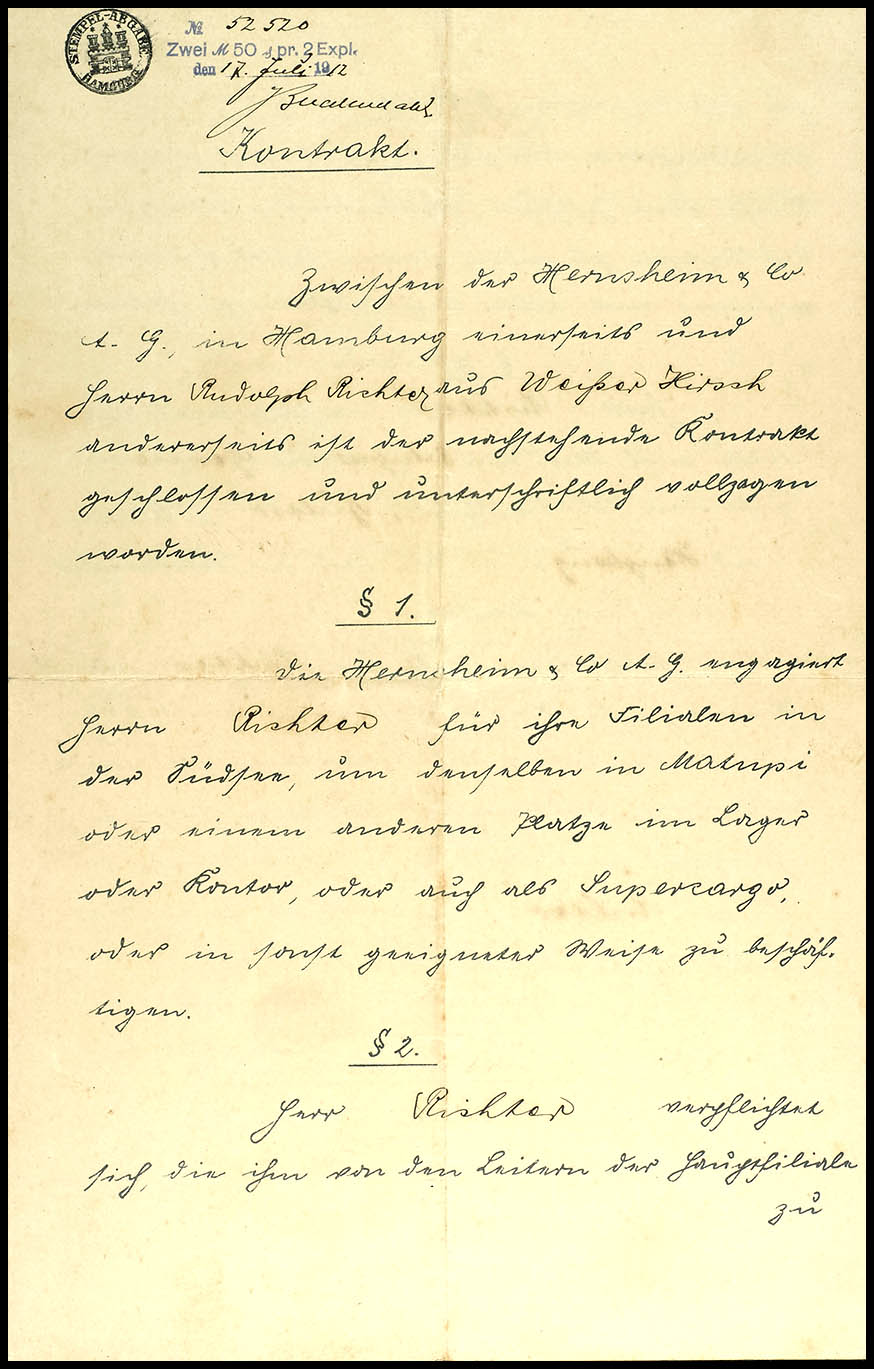 STEMPEL-ABGABE
HAMBURG
№ 52520
Zwei M 50 ₰ pr. 2 Expl.
den 17. Juli 1912
Kontrakt.
Zwischen der Hernsheim & Co
A. G., in Hamburg einerseits und
Herrn Rudolph Richter aus Weißer Hirsch
andererseits ist der nachstehende Kontrakt
geschlossen und unterschriftlich vollzogen
worden.
§ 1.
Die Hernsheim & Co A. G. engagiert
Herrn Richter für ihre Filialen in
der Südsee, um denselben in Matupi
oder einem anderen Platze im Lager
oder Kontor, oder auch als Supercargo,
oder in sonst geeigneter Weise zu beschäf-
tigen.
§ 2.
Herr Richter verpflichtet
sich, die ihm von den Leitern der Hauptfiliale
zu